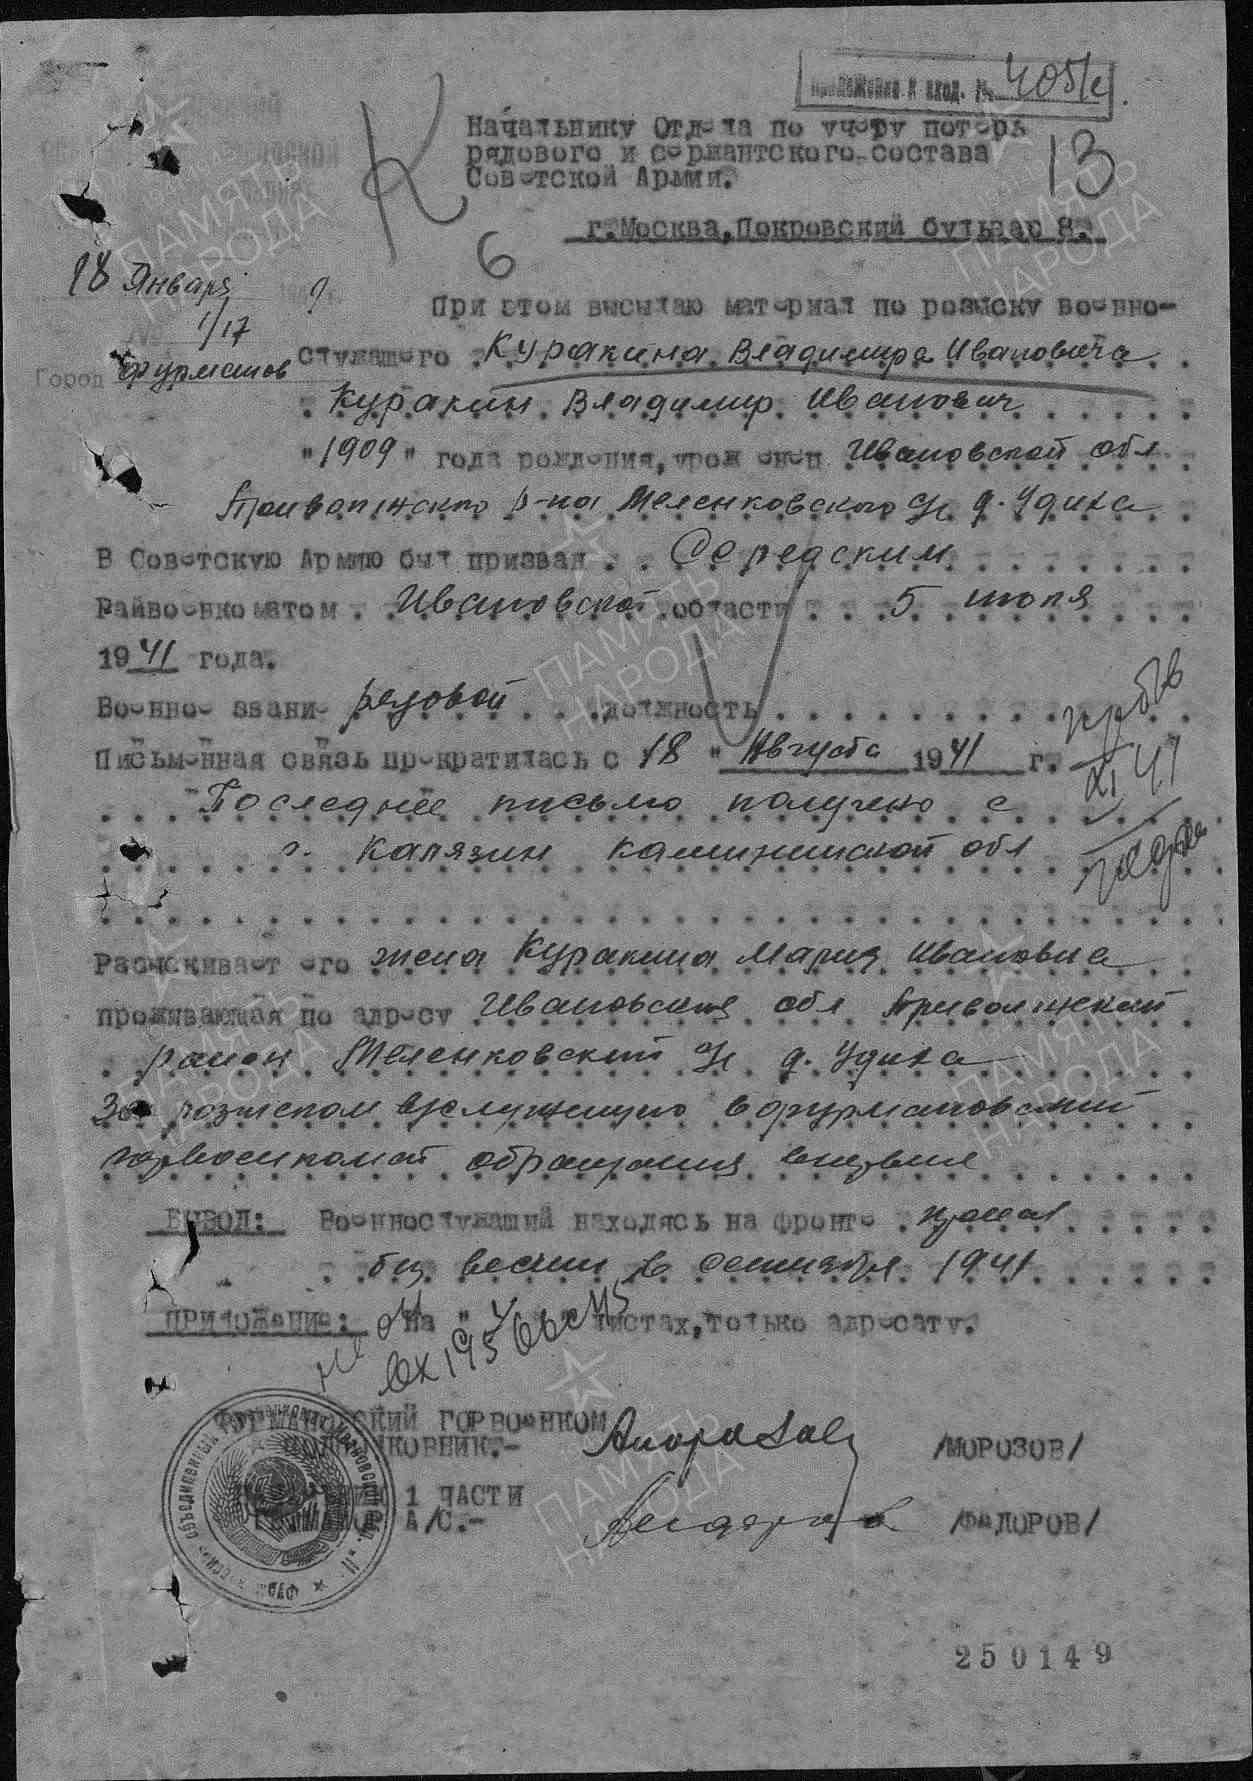 Приложение к вход. № 4051с
Начальнику Отдела по учету потерь
рядового и сержантского состава
Советской Армии.
К
13
г.Москва, Покровский бульвар 8.
6
18 Января
№ 1/17
Город Фурманов
При этом высылаю материал по розыску военно-
служащего Куракина Владимира Ивановича
Куракин Владимир Иванович
"1909" года рождения, урож енец Ивановской обл
Приволжского р-на Меленковского с/с д. Удиха
В Советскую Армию был призван Середским
Райвоенкоматом Ивановской области 5 июля
1941 года.
Военное звание рядовой должность
Письменная связь прекратилась с 18 " Августа 1941 г.
Последнее письмо получено с
г. Калязин Калининской обл
XI 41
Разыскивает его жена Куракина Мария Ивановна
проживающая по адресу Ивановская обл Приволжский
район Меленковский с/с д. Удиха
За розыском в/служащего в Фурмановский
горвоенкомат обращения
ВЫВОД: Военнослужащий находясь на фронте пропал
без вести в сентябре 1941
ПРИЛОЖЕНИЕ: на " 4 листах, только адресату.
ФУРМАНОВСКИЙ ГОРВОЕНКОМ
ПОДПОЛКОВНИК.- /МОРОЗОВ/
1 ЧАСТИ
А/С.- /ФЕДОРОВ/
250149
ПАМЯТЬ НАРОДА